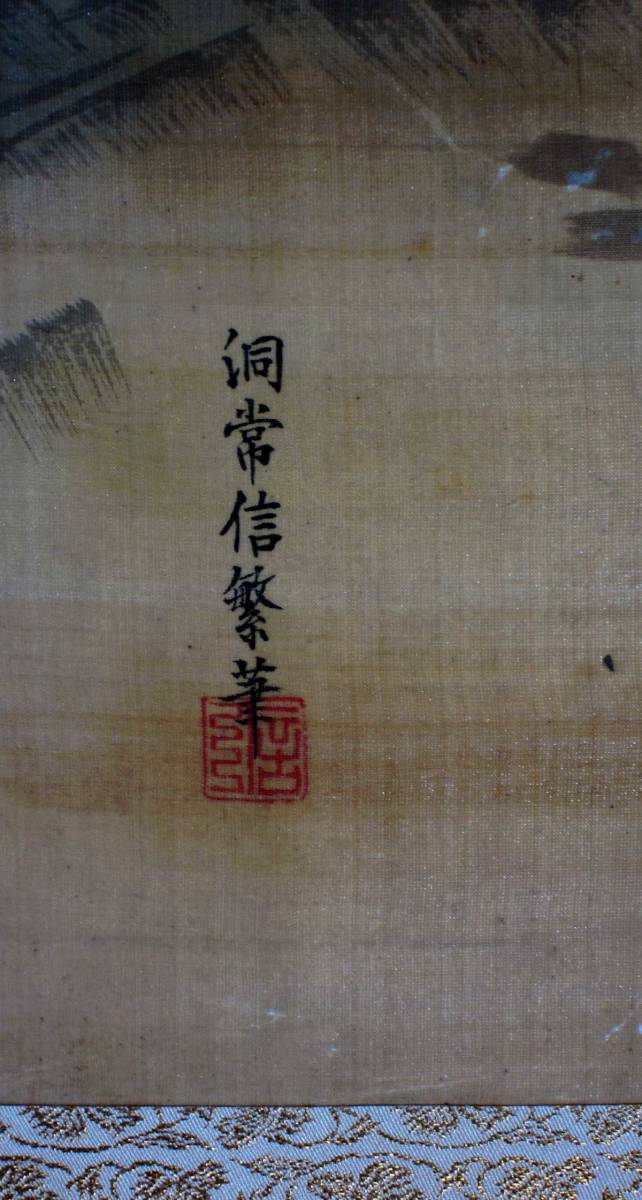 洞常信繁筆